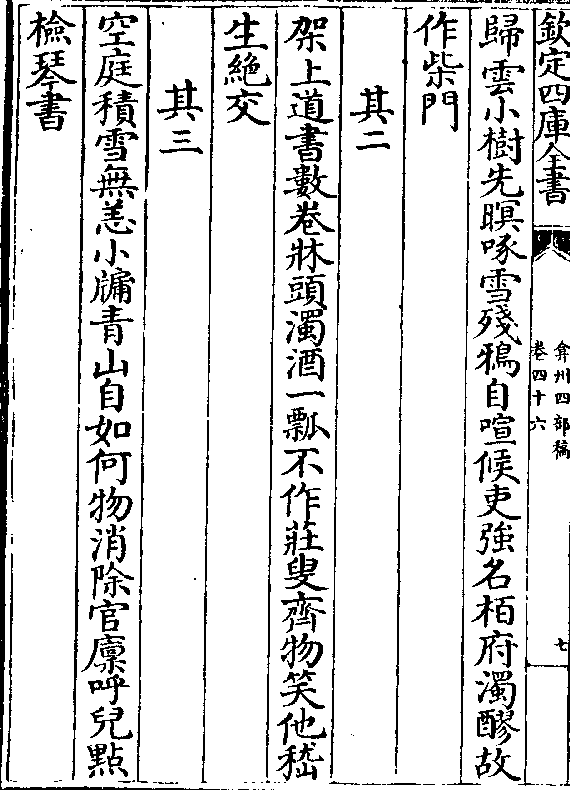 欽定四庫全書
弇州四部稿
卷四十六
七
歸雲小樹先暝啄雪殘鴉自喧候吏強名栢府濁醪故
作柴門
其二
架上道書數卷牀頭濁酒一瓢不作莊叟齊物笑他嵇
生絶交
其三
空庭積雪無恙小牖青山自如何物消除官廩呼兒點
檢琴書